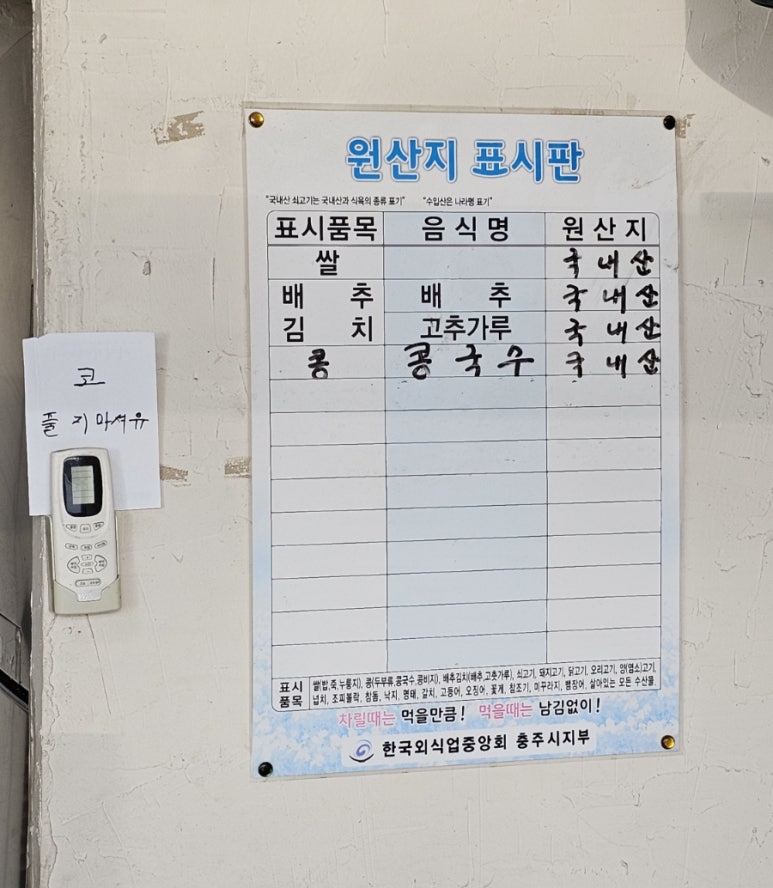 원산지 표시판
"국내산 쇠고기는 국내산과 식육의 종류 표기" "수입산은 나라명 표기"
표시품목 음식명 원산지
쌀 국내산
배추 배추 국내산
김치 고추가루 국내산
콩 콩국수 국내산
표시품목 쌀(밥,죽,누룽지), 콩(두부류,콩국수,콩비지), 배추김치(배추,고춧가루), 쇠고기, 돼지고기, 닭고기, 오리고기, 양(염소)고기,
넙치, 조피볼락, 참돔, 낙지, 명태, 갈치, 고등어, 오징어, 꽃게, 참조기, 미꾸라지, 뱀장어, 살아있는 모든 수산물
차릴때는 먹을만큼! 먹을때는 남김없이!
한국외식업중앙회 충주시지부
코
풀지마셔유